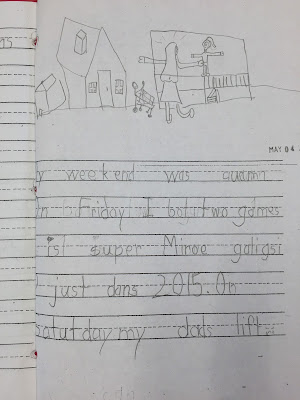 as
MAY 04
y weekend was
n Friday I bot two games
is super Minoe galigsi
just dans 2015. On
satutday my dads lift